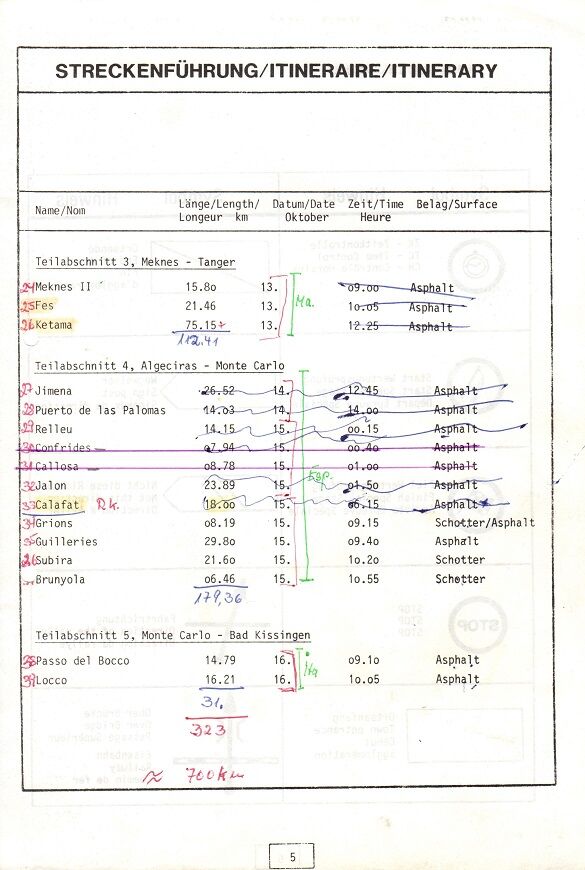 STRECKENFÜHRUNG/ITINERAIRE/ITINERARY
Name/Nom Länge/Length/ Datum/Date Zeit/Time Belag/Surface
Longeur km Oktober Heure
Teilabschnitt 3, Meknes - Tanger
24 Meknes II 15.8o 13. o9.oo Asphalt
25 Fes 21.46 13. 1o.o5 Asphalt
26 Ketama 75.15 13. 12.25 Asphalt
Ma.
112.41
Teilabschnitt 4, Algeciras - Monte Carlo
27 Jimena 26.52 14. 12.45 Asphalt
28 Puerto de las Palomas 14.o3 14. 14.oo Asphalt
29 Relleu 14.15 15. oo.15 Asphalt
30 Confrides o7.94 15. oo.4o Asphalt
31 Callosa o8.78 15. o1.oo Asphalt
32 Jalon 23.89 15. o1.5o Asphalt
33 Calafat Rk. 18.oo 15. o6.15 Asphalt
34 Grions o8.19 15. o9.15 Schotter/Asphalt
35 Guilleries 29.8o 15. o9.4o Asphalt
Subira 21.6o 15. 1o.2o Schotter
Brunyola o6.46 15. 1o.55 Schotter
179,36
Teilabschnitt 5, Monte Carlo - Bad Kissingen
38 Passo del Bocco 14.79 16. o9.1o Asphalt
39 Locco 16.21 16. 1o.o5 Asphalt
Ita
31.
323
≈ 700km
5